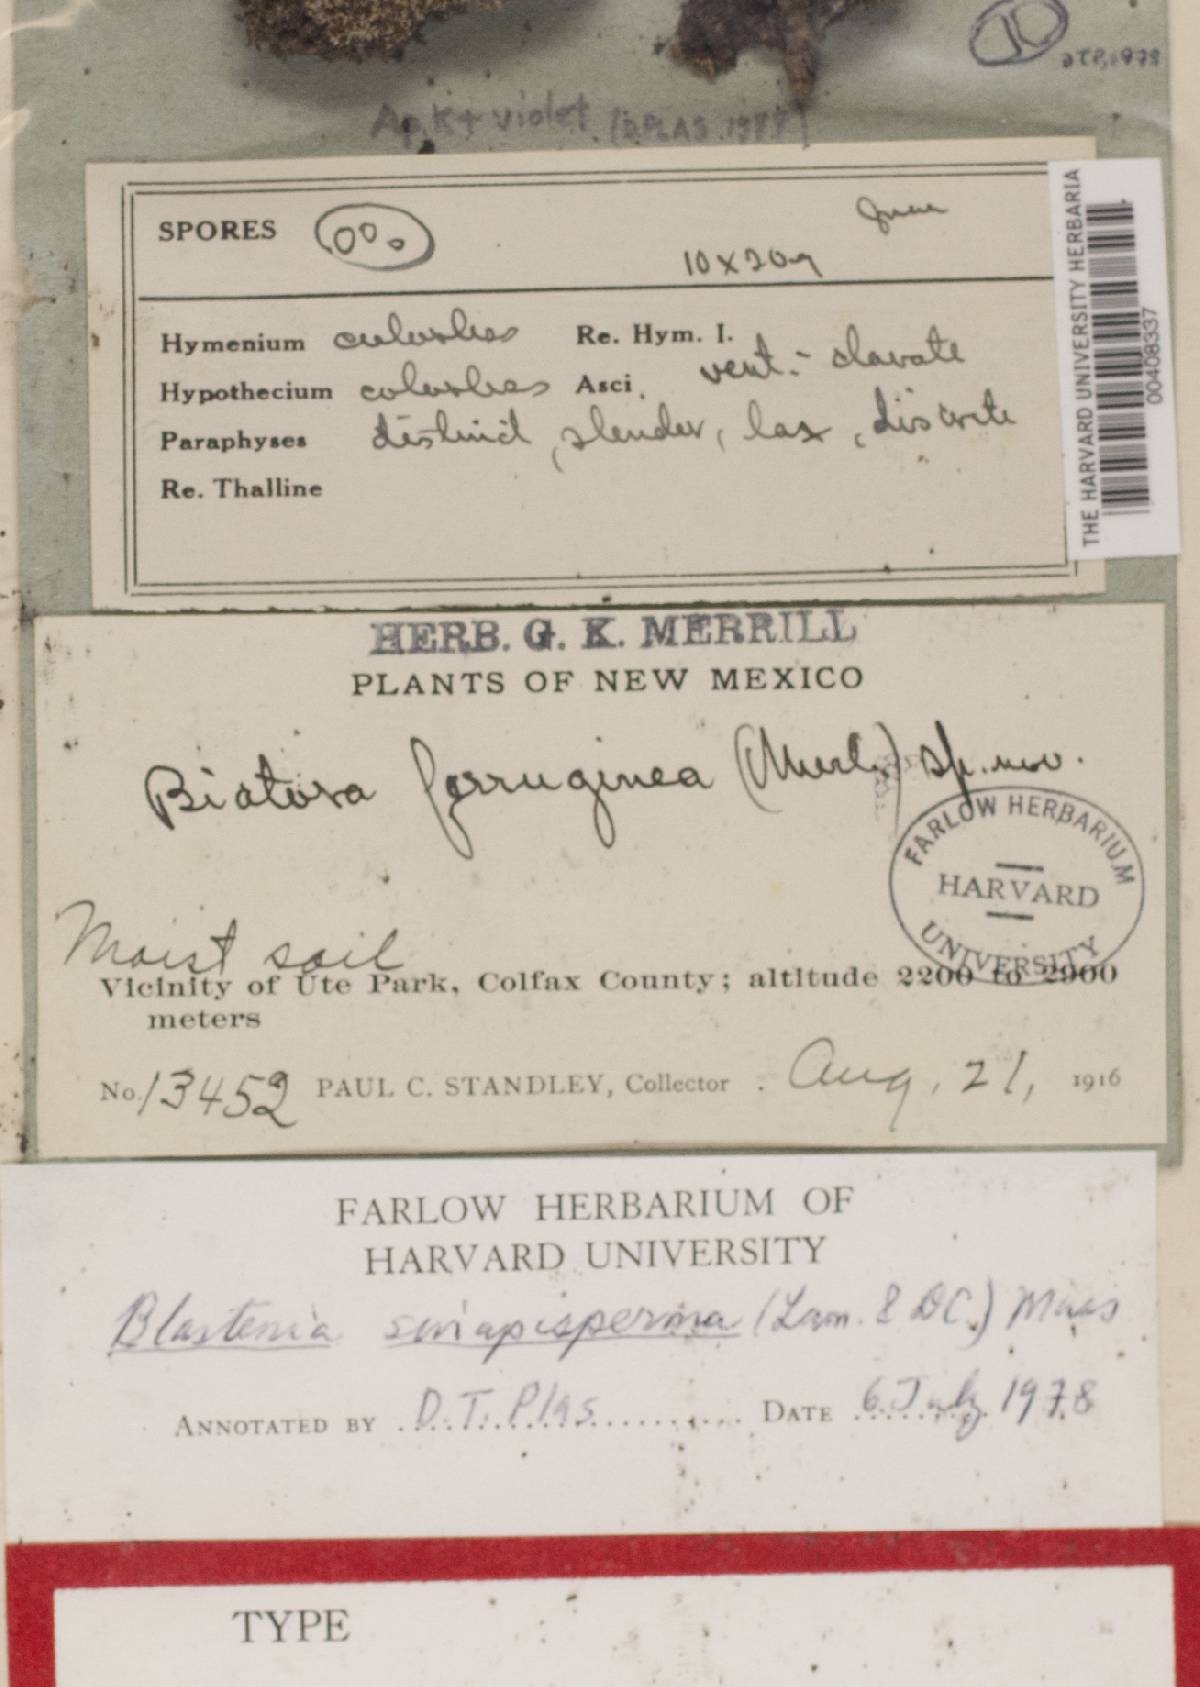 DTP, 1978
Ap K+ violet (D. PLAS 1978)
SPORES
10 x 20
Hymenium colorless Re. Hym. I.
Hypothecium colorless Asci. vent.- clavate
Paraphyses distinct, slender, lax, discrete
Re. Thalline
THE HARVARD UNIVERSITY HERBARIA
00408337
HERB. G. K. MERRILL
PLANTS OF NEW MEXICO
Biatora ferruginea (Merl.) sp. nov.
FARLOW HERBARIUM
HARVARD
UNIVERSITY
Moist soil
Vicinity of Ute Park, Colfax County; altitude 2200 to 2900
meters
No. 13452 PAUL C. STANDLEY, Collector. Aug. 21, 1916
FARLOW HERBARIUM OF
HARVARD UNIVERSITY
Blastenia sinapisperma (Lam. & DC.) Mass
ANNOTATED BY D. T. Plas DATE 6 July 1978
TYPE